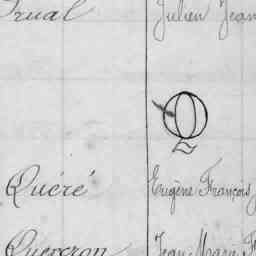 Prual Julien Jean
Q
Quéré Eugène François J
Quercron Jean Marie F